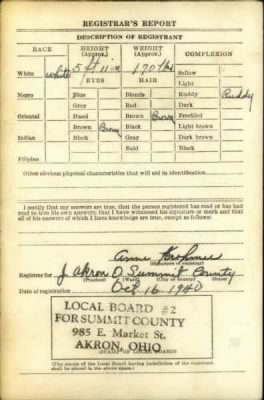 REGISTRAR'S REPORT
DESCRIPTION OF REGISTRANT
RACE HEIGHT (Approx.) WEIGHT (Approx.) COMPLEXION
White white 5 ft 11 in 170 lbs Sallow
EYES HAIR Light
Negro Blue Blonde Ruddy Ruddy
Gray Red Dark
Oriental Hazel Brown Brown Freckled
Brown Brown Black Light brown
Indian Black Gray Dark brown
Bald Black
Filipino
Other obvious physical characteristics that will aid in identification
I certify that my answers are true; that the person registered has read or has had
read to him his own answers; that I have witnessed his signature or mark and that
all of his answers of which I have knowledge are true, except as follows:
Anne
(Signature of registrar)
Registrar for J Akron O Summit County
(Precinct) (Ward) (City or county) (State)
Date of registration Oct 16 1940
LOCAL BOARD #2
FOR SUMMIT COUNTY
985 E. Market St.
AKRON, OHIO
(STAMP OF LOCAL BOARD)
(The stamp of the Local Board having jurisdiction of the registrant
shall be placed in the above space.)